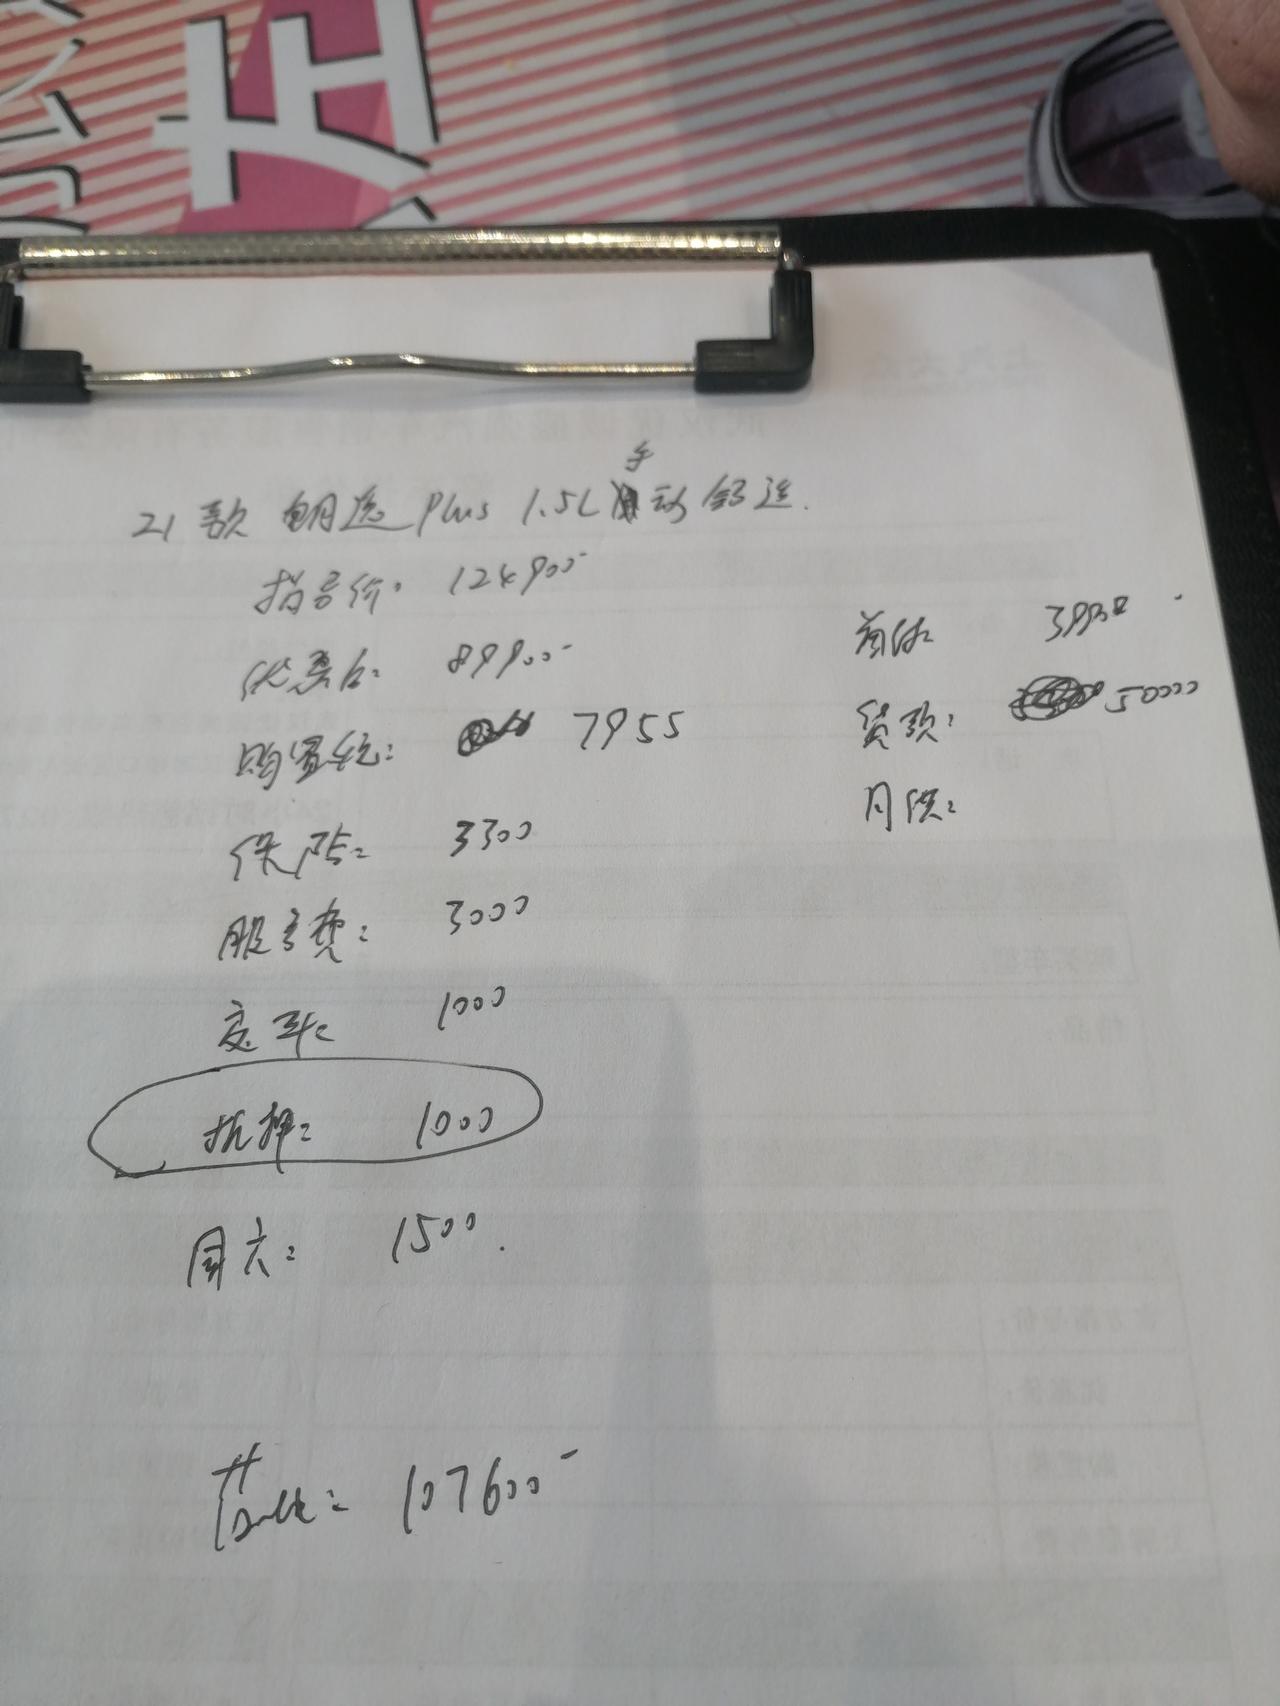 21款 朗逸 Plus 1.5L 手动舒适.
指导价: 124900-
优惠后: 89900-
购置税: 7955
保险: 3300
服务费: 3000
交车: 1000
抵押: 1000
同六: 1500.
107600-
首付: 39900
贷款: 50000
月供: